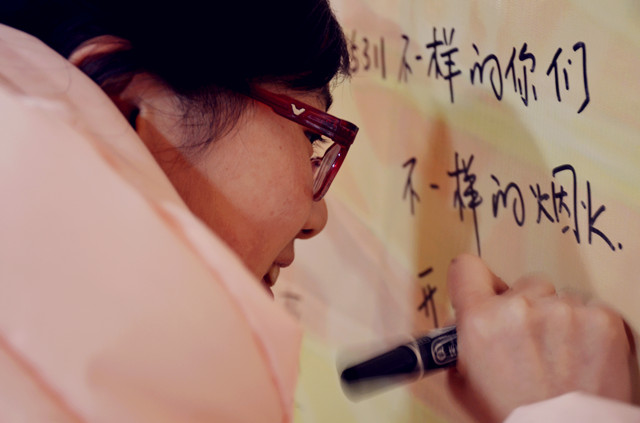 不一样的你们
不一样的烟火.
开